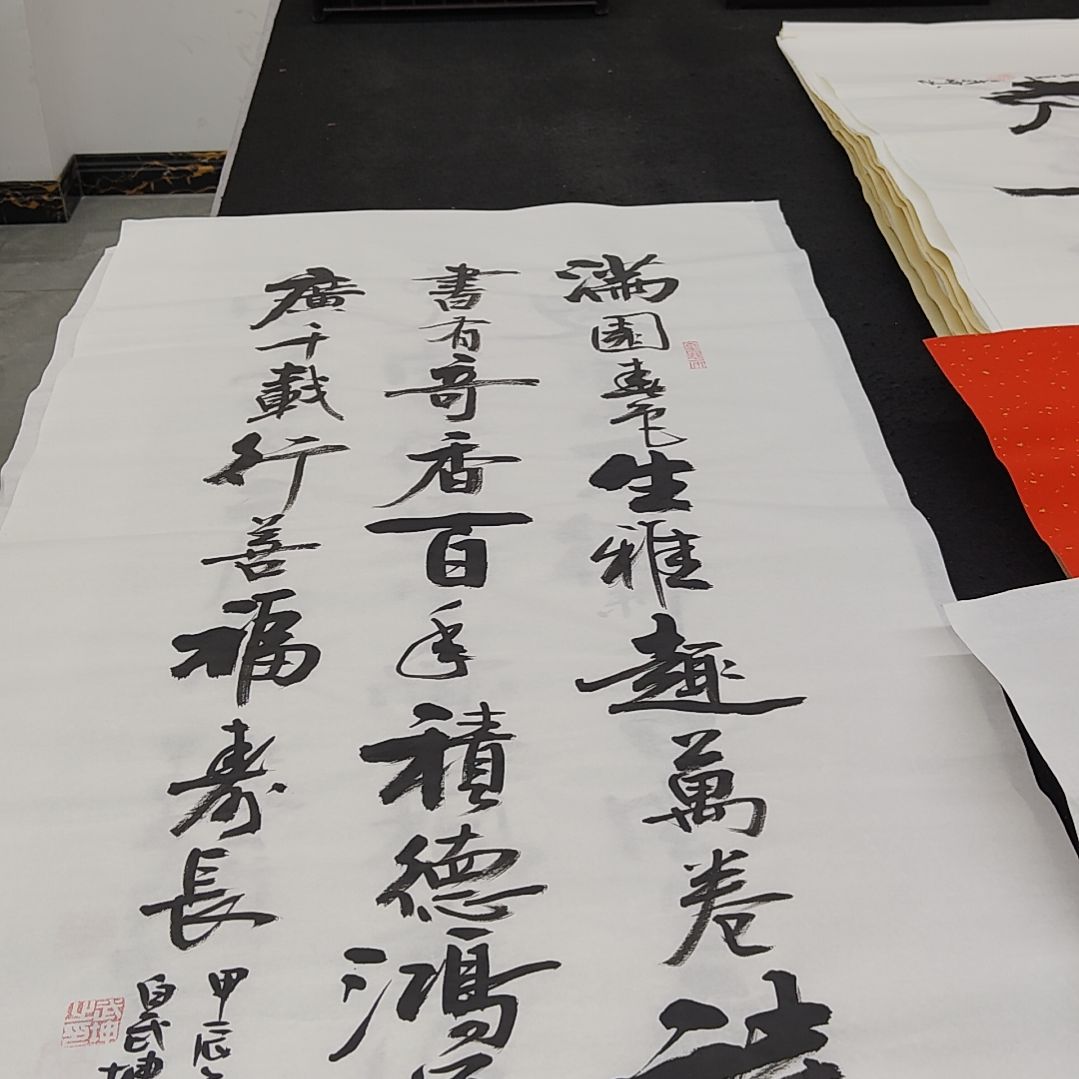 滿園春色生雅趣萬卷詩
書有奇香百年積德鴻
廣千載行善福壽長
甲辰
武坤
武坤之印